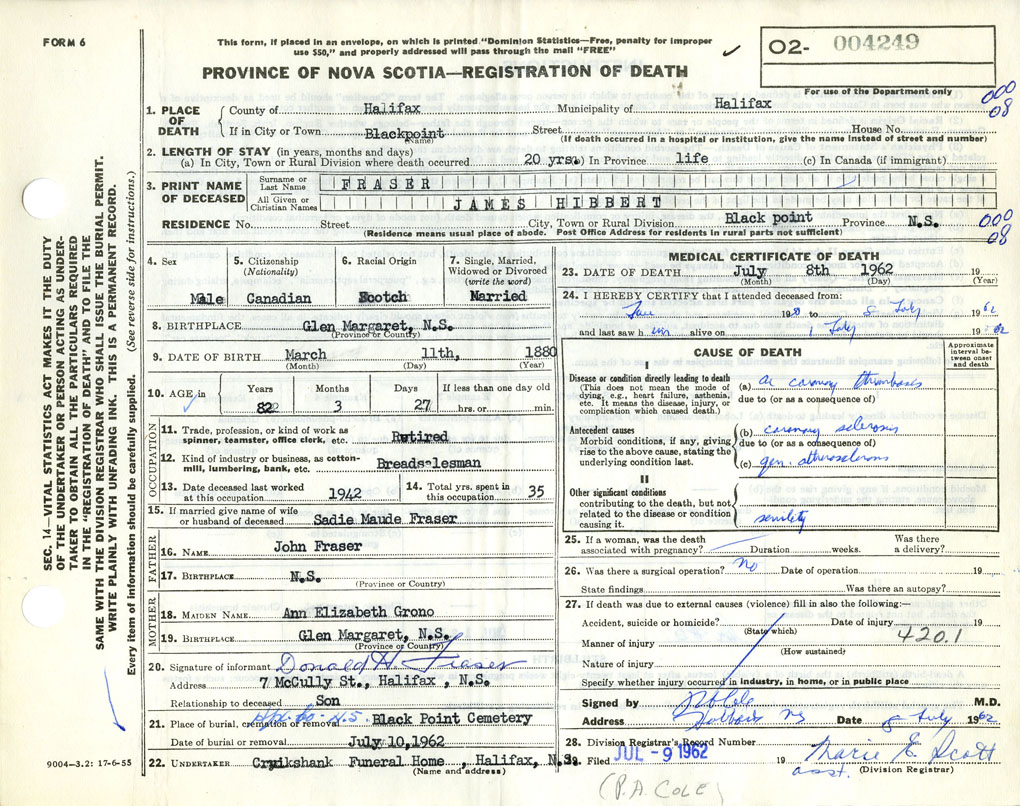 FORM 6
This form, if placed in an envelope, on which is printed "Dominion Statistics—Free, penalty for improper
use $50," and properly addressed will pass through the mail "FREE"
O2- 004249
For use of the Department only
PROVINCE OF NOVA SCOTIA—REGISTRATION OF DEATH
SEC. 14—VITAL STATISTICS ACT MAKES IT THE DUTY
OF THE UNDERTAKER OR PERSON ACTING AS UNDER-
TAKER TO OBTAIN ALL THE PARTICULARS REQUIRED
IN THE "REGISTRATION OF DEATH" AND TO FILE THE
SAME WITH THE DIVISION REGISTRAR WHO SHALL ISSUE THE BURIAL PERMIT.
WRITE PLAINLY WITH UNFADING INK. THIS IS A PERMANENT RECORD.
Every item of information should be carefully supplied. (See reverse side for instructions.)
1. PLACE OF DEATH
County of Halifax Municipality of Halifax
000
08
If in City or Town Blackpoint Street House No.
(Name) (If death occurred in a hospital or institution, give the name instead of street and number)
2. LENGTH OF STAY (in years, months and days)
(a) In City, Town or Rural Division where death occurred 20 yrs. (b) In Province life (c) In Canada (if immigrant)
3. PRINT NAME OF DECEASED
Surname or Last Name FRASER
All Given or Christian Names JAMES HIBBERT
RESIDENCE No. Street City, Town or Rural Division Black point Province N.S.
000
08
(Residence means usual place of abode. Post Office Address for residents in rural parts not sufficient)
4. Sex
Male
5. Citizenship
(Nationality)
Canadian
6. Racial Origin
Scotch
7. Single, Married,
Widowed or Divorced
(write the word)
Married
8. BIRTHPLACE Glen Margaret, N.S.
(Province or Country)
9. DATE OF BIRTH March 11th, 1880
(Month) (Day) (Year)
10. AGE in
Years Months Days If less than one day old
82 3 27 hrs. or min.
OCCUPATION
11. Trade, profession, or kind of work as
spinner, teamster, office clerk, etc. Retired
12. Kind of industry or business, as cotton-
mill, lumbering, bank, etc. Breadslesman
13. Date deceased last worked
at this occupation 1942
14. Total yrs. spent in
this occupation 35
15. If married give name of wife
or husband of deceased Sadie Maude Fraser
FATHER
16. NAME John Fraser
17. BIRTHPLACE N.S.
(Province or Country)
MOTHER
18. MAIDEN NAME Ann Elizabeth Grono
19. BIRTHPLACE Glen Margaret, N.S.
(Province or Country)
20. Signature of informant Donald H. Fraser
Address 7 McCully St., Halifax, N.S.
Relationship to deceased Son
21. Place of burial, cremation or removal Hfx. Co. N.S. Black Point Cemetery
Date of burial or removal July 10,1962
22. UNDERTAKER Cruikshank Funeral Home, Halifax, N.S.
(Name and address)
9004-3.2: 17-6-55
MEDICAL CERTIFICATE OF DEATH
23. DATE OF DEATH July 8th 1962 19
(Month) (Day) (Year)
24. I HEREBY CERTIFY that I attended deceased from:
19 to 8 July 1962
and last saw him alive on July 1962
CAUSE OF DEATH
Approximate
interval be-
tween onset
and death
I
Disease or condition directly leading to death
(This does not mean the mode of
dying, e.g., heart failure, asthenia,
etc. It means the disease, injury, or
complication which caused death.)
(a) ac coronary thrombosis
due to (or as a consequence of)
Antecedent causes
Morbid conditions, if any, giving
rise to the above cause, stating the
underlying condition last.
(b) coronary sclerosis
due to (or as a consequence of)
(c) gen. atherosclerosis
II
Other significant conditions
contributing to the death, but not
related to the disease or condition
causing it.
senility
25. If a woman, was the death
associated with pregnancy? Duration weeks. Was there
a delivery?
26. Was there a surgical operation? No Date of operation 19
State findings Was there an autopsy?
27. If death was due to external causes (violence) fill in also the following:—
Accident, suicide or homicide? Date of injury 19
(State which)
420.1
Manner of injury
(How sustained)
Nature of injury
Specify whether injury occurred in industry, in home, or in public place
Signed by P A Cole M.D.
Address Hubbards NS Date 8 July 1962
28. Division Registrar's Record Number
29. Filed JUL -9 1962 19 Marie E Scott
asst. (Division Registrar)
(P.A. COLE)